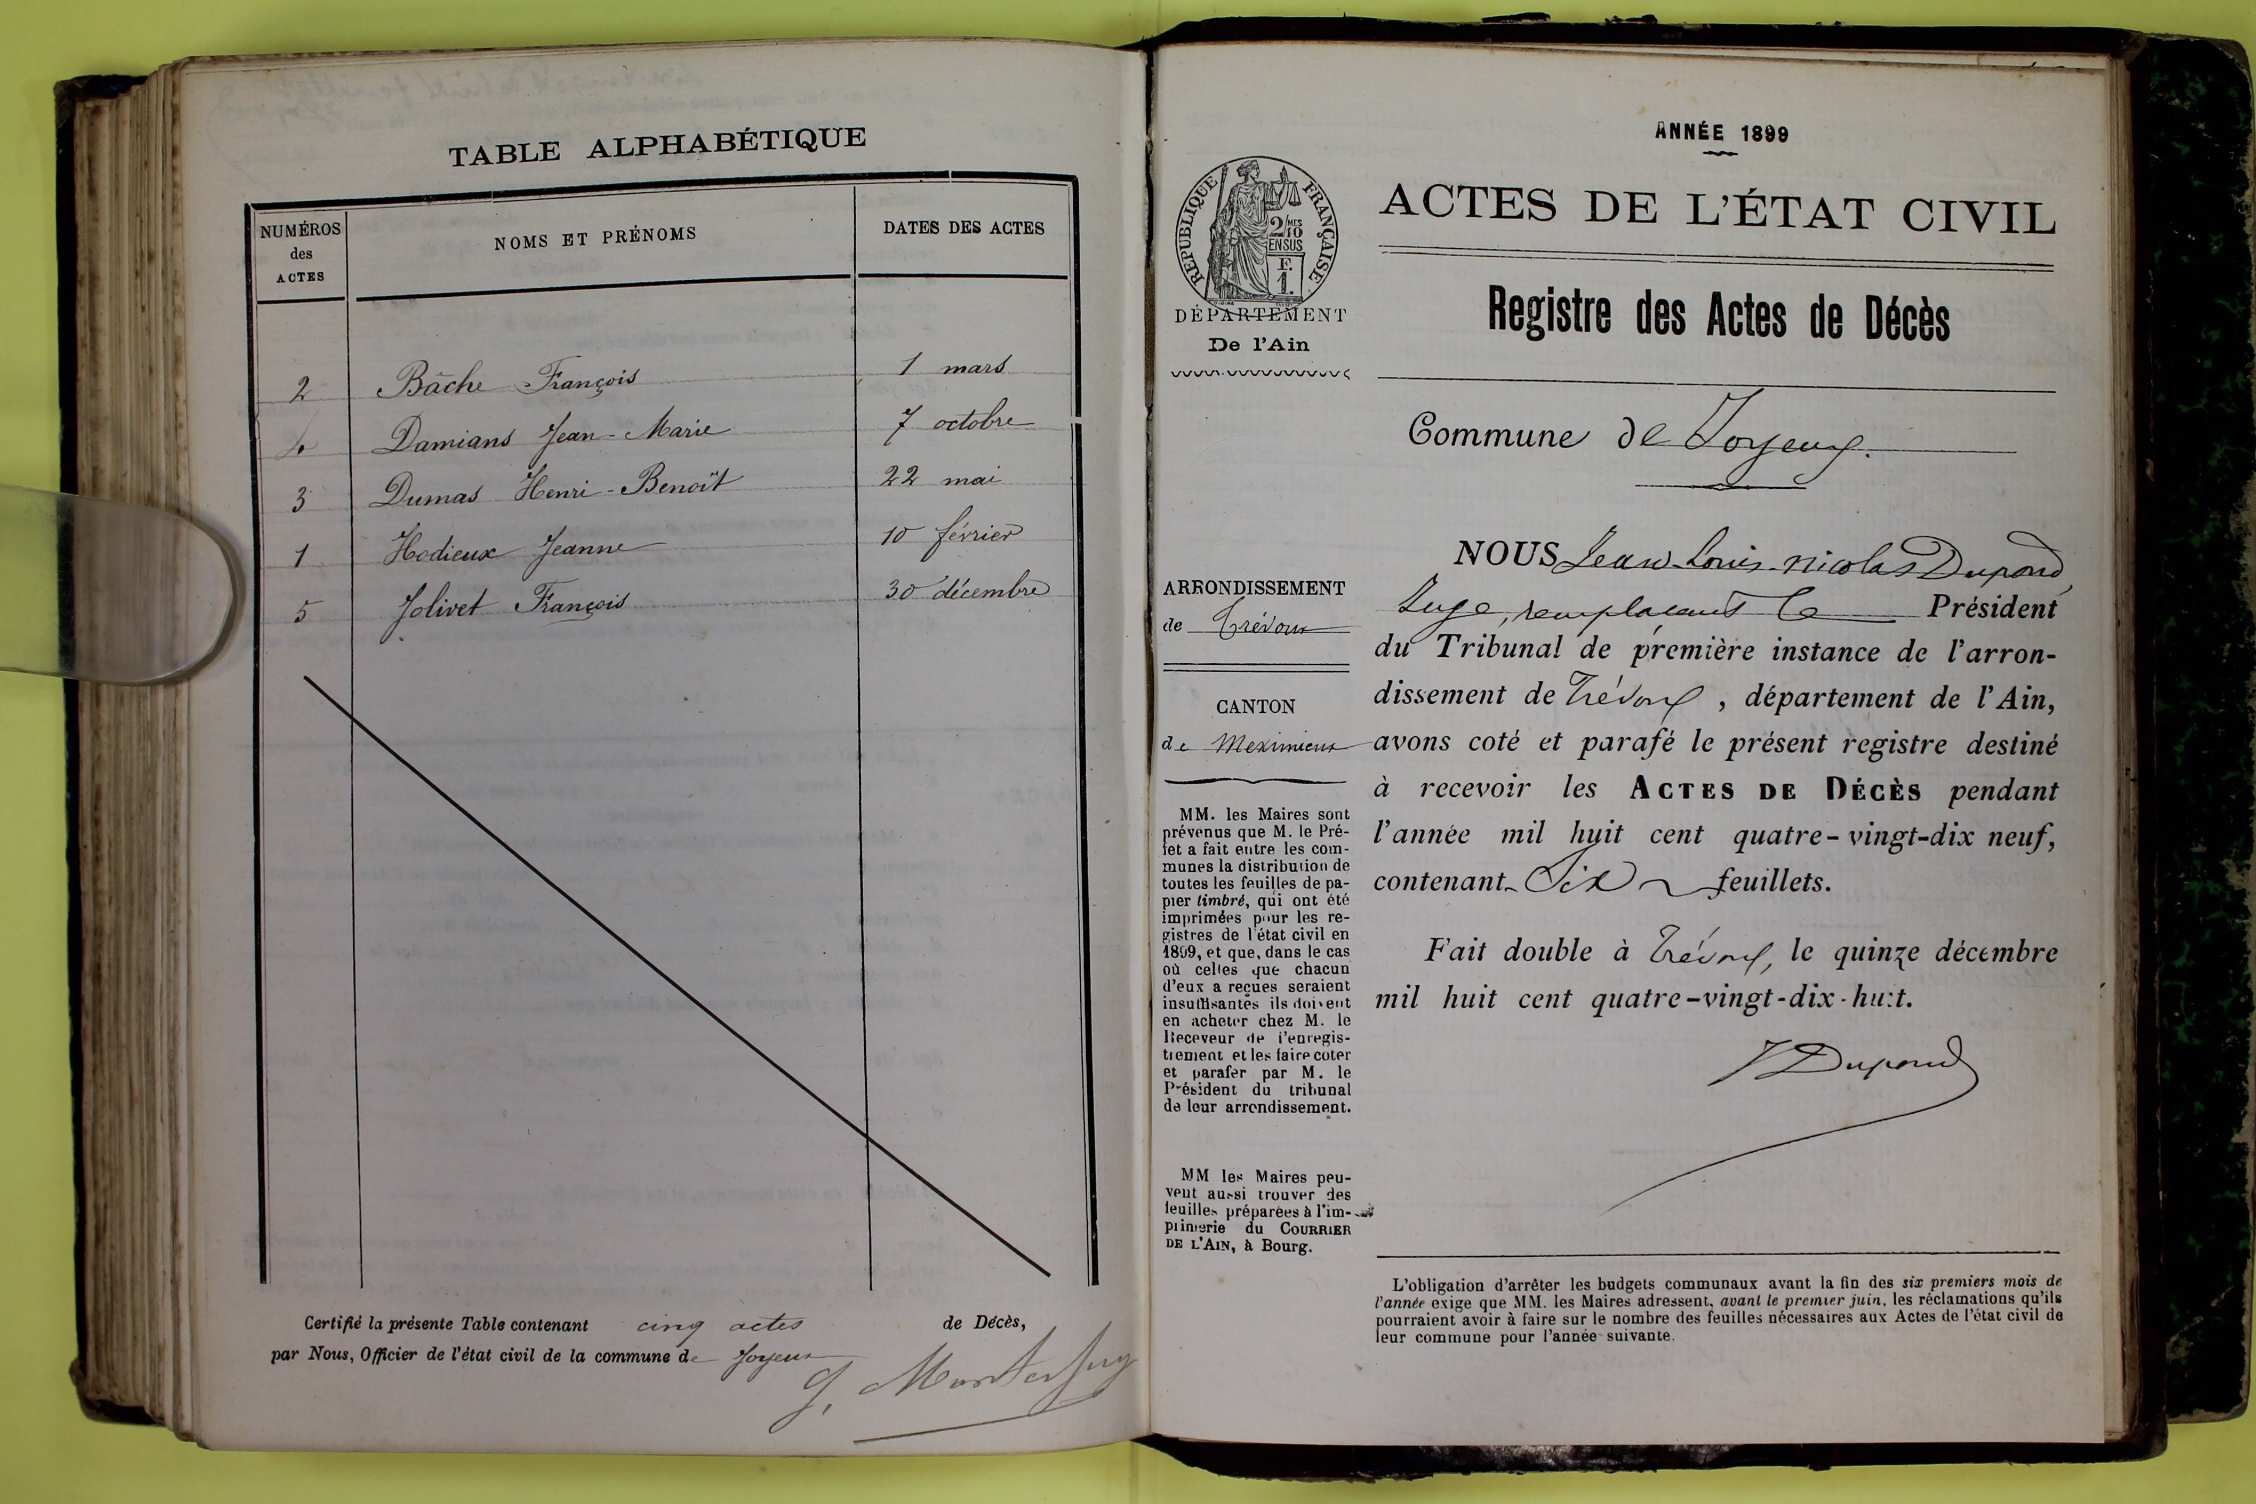 TABLE ALPHABÉTIQUE
NUMÉROS des ACTES NOMS ET PRÉNOMS DATES DES ACTES
2 Bâche François 1 mars
4 Damians Jean-Marie 7 octobre
3 Dumas Henri-Benoît 22 mai
1 Hodieux Jeanne 10 février
5 Jolivet François 30 décembre
Certifié la présente Table contenant cinq actes de Décès,
par Nous, Officier de l'état civil de la commune de Joyeux
ANNÉE 1899
RÉPUBLIQUE FRANÇAISE
2/10 MES
EN SUS
F.
1.
DÉPARTEMENT
De l'Ain
ARRONDISSEMENT
de Trévoux
CANTON
de Meximieux
MM. les Maires sont
prévenus que M. le Pré-
fet a fait entre les com-
munes la distribution de
toutes les feuilles de pa-
pier timbré, qui ont été
imprimées pour les re-
gistres de l'état civil en
1899, et que, dans le cas
où celles que chacun
d'eux a reçues seraient
insuffisantes ils doivent
en acheter chez M. le
Receveur de l'enregis-
trement et les faire coter
et parafer par M. le
Président du tribunal
de leur arrondissement.
MM les Maires peu-
vent aussi trouver des
feuilles préparées à l'im-
primerie du COURRIER
DE L'AIN, à Bourg.
ACTES DE L'ÉTAT CIVIL
Registre des Actes de Décès
Commune de Joyeux.
NOUS Jean-Louis-Nicolas Dupond,
Juge, remplaçant le Président
du Tribunal de première instance de l'arron-
dissement de Trévoux, département de l'Ain,
avons coté et parafé le présent registre destiné
à recevoir les ACTES DE DÉCÈS pendant
l'année mil huit cent quatre-vingt-dix neuf,
contenant Six feuillets.
Fait double à Trévoux, le quinze décembre
mil huit cent quatre-vingt-dix-huit.
J Dupond
L'obligation d'arrêter les budgets communaux avant la fin des six premiers mois de
l'année exige que MM. les Maires adressent, avant le premier juin, les réclamations qu'ils
pourraient avoir à faire sur le nombre des feuilles nécessaires aux Actes de l'état civil de
leur commune pour l'année suivante.